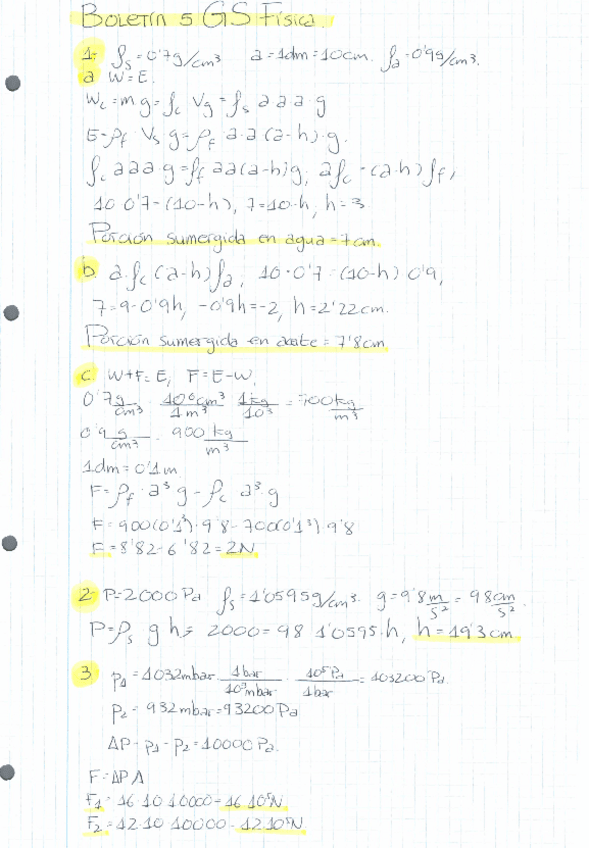 BOLETÍN 5 GS Física.
1- ρs = 0'7g/cm³ a = 1dm = 10cm. ρa = 0'9g/cm³.
a W = E.
Wc = m g = ρc Vg = ρs a a a g
E = ρf Vs g = ρf a a (a-h) g.
ρc a a a g = ρf a a (a-h) g; aρc = (a-h) ρf;
10 0'7 = (10-h), 7 = 10-h, h = 3
Porción sumergida en agua = 7cm.
b. a ρc (a-h) ρa, 10·0'7 = (10-h) 0'9,
7 = 9 - 0'9h, -0'9h = -2, h = 2'22cm.
Porción sumergida en aceite = 7'8cm
c. W+F = E, F = E-W,
0'7 g/cm³ · 10⁶cm³/1m³ · 1kg/10³ = 700 kg/m³
0'9 g/cm³ = 900 kg/m³
1dm = 0'1m
F = ρf · a³ g - ρc a³ · g
F = 900(0'1³)·9'8 - 700(0'1³)·9'8
F = 8'82 - 6'82 = 2N
2- P = 2000 Pa ρs = 1'0595g/cm³. g = 9'8 m/s² = 98 dm/s².
P = ρs g h = 2000 = 98 1'0595·h, h = 19'3 cm
3 p1 = 1032mbar · 1bar/10³mbar · 10⁵Pa/1bar = 103200 Pa.
p2 = 932mbar = 93200 Pa
ΔP = p1 - p2 = 10000 Pa.
F = ΔP A
F1 = 16·10 10000 = 16·10⁵N
F2 = 12·10 10000 = 12·10⁵N